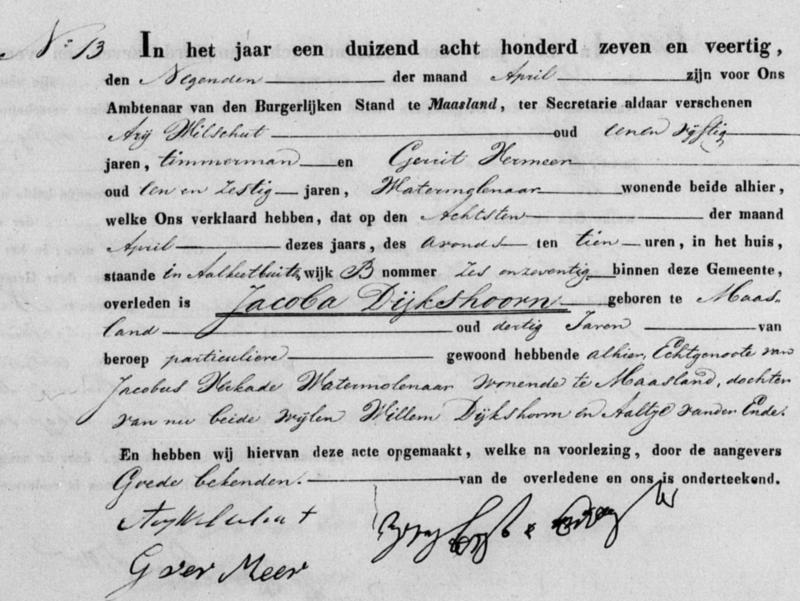 No 13 In het jaar een duizend acht honderd zeven en veertig,
den Negenden der maand April zijn voor Ons
Ambtenaar van den Burgerlijken Stand te Maasland, ter Secretarie aldaar verschenen
Arij Wilschut oud eenen vijftig
jaren, timmerman en Gerrit Vermeer
oud Een en Zestig jaren, Watermolenaar wonende beide alhier,
welke Ons verklaard hebben, dat op den Achtsten der maand
April dezes jaars, des avonds ten tien uren, in het huis,
staande in Aalkeetbuiten, wijk B nommer Zes en zeventig binnen deze Gemeente,
overleden is Jacoba Dijkshoorn geboren te Maas-
land oud dertig Jaren van
beroep particuliere gewoond hebbende alhier, Echtgenoote van
Jacobus Kade Watermolenaar wonende te Maasland, dochter
van nu beide wijlen Willem Dijkshoorn en Aaltje vander Ende.
En hebben wij hiervan deze acte opgemaakt, welke na voorlezing, door de aangevers
Goede bekenden. van de overledene en ons is onderteekend.
Arij Wilschut
G ver Meer